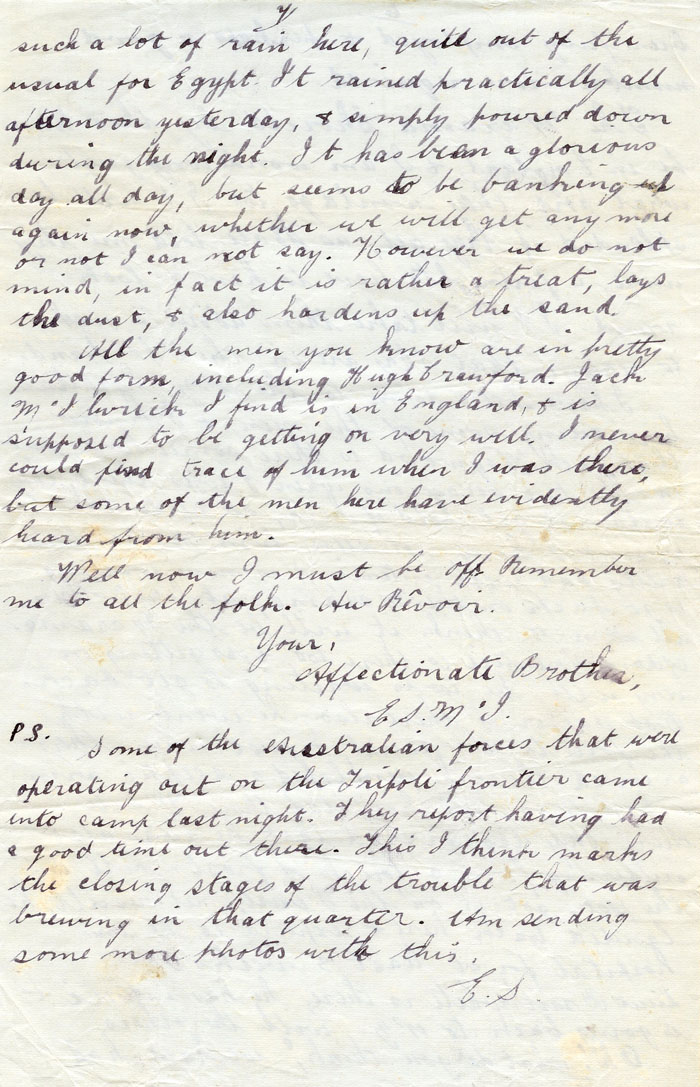 such a lot of rain here, quite out of the
usual for Egypt. It rained practically all
afternoon yesterday, & simply poured down
during the night. It has been a glorious
day all day, but seems to be banking up
again now, whether we will get any more
or not I can not say. However we do not
mind, in fact it is rather a treat, lays
the dust, & also hardens up the sand.
All the men you know are in pretty
good form, including Hugh Crawford. Jack
McIlwrick I find is in England, & is
supposed to be getting on very well. I never
could find trace of him when I was there,
but some of the men here have evidently
heard from him.
Well now I must be off Remember
me to all the folk. Au Rêvoir.
Your,
Affectionate Brother,
E S. McI.
P.S.
Some of the Australian forces that were
operating out on the Tripoli frontier came
into camp last night. They report having had
a good time out there. This I think marks
the closing stages of the trouble that was
brewing in that quarter. Am sending
some more photos with this.
E. S.